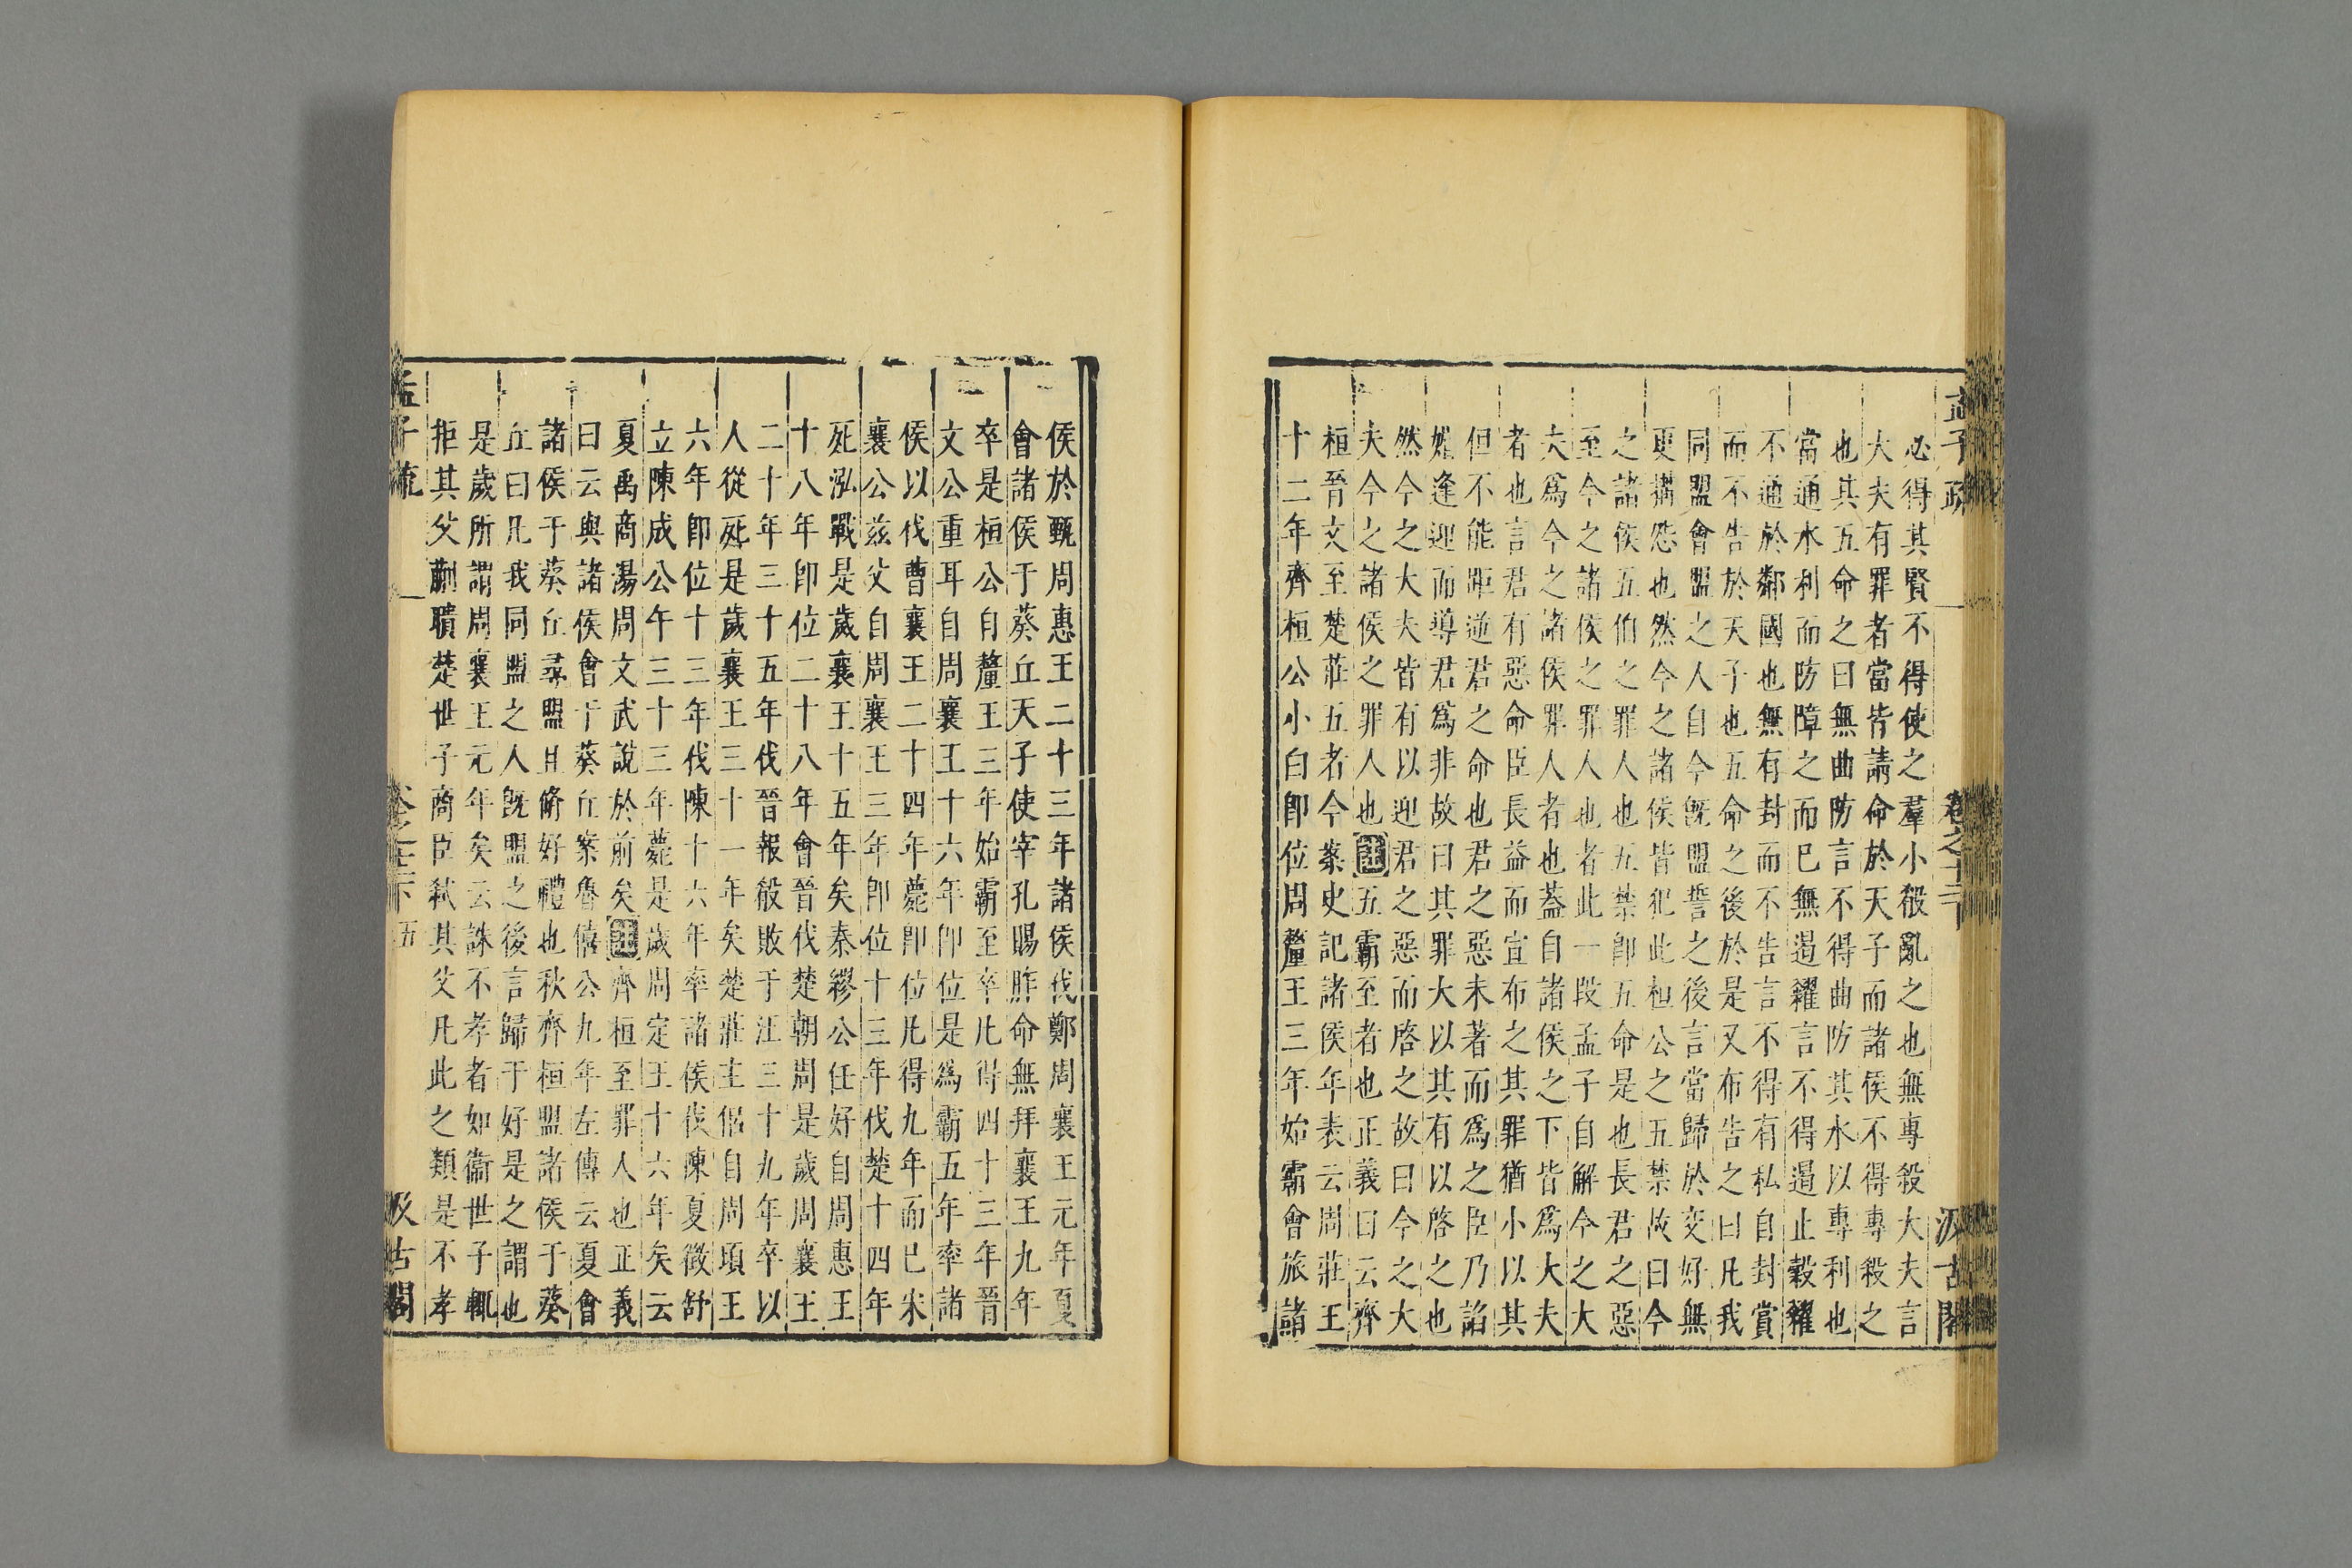 孟子疏
卷之十二下
汲古閣
必得其賢不得使之羣小殽亂之也無專殺大夫言
大夫有罪者當皆請命於天子而諸侯不得專殺之
也其五命之曰無曲防言不得曲防其水以專利也
當通水利而防障之而已無遏糴言不得遏止穀糴
不通於鄰國也無有封而不告言不得有私自封賞
而不告於天子也五命之後於是又布告之曰凡我
同盟會盟之人自今旣盟誓之後言當歸於交好無
更搆怨也然今之諸侯皆犯此桓公之五禁故曰今
之諸侯五伯之罪人也五禁卽五命是也長君之惡
至今之諸侯之罪人也者此一段孟子自解今之大
夫爲今之諸侯罪人者也蓋自諸侯之下皆爲大夫
者也言君有惡命臣長益而宣布之其罪猶小以其
但不能距逆君之命也君之惡未著而爲之臣乃諂
媚逢迎而導君爲非故曰其罪大以其有以啓之也
然今之大夫皆有以迎君之惡而啓之故曰今之大
夫今之諸侯之罪人也注五霸至者也正義曰云齊
桓晉文至楚莊五者今案史記諸侯年表云周莊王
十二年齊桓公小白卽位周釐王三年始霸會旅諸
侯於甄周惠王二十三年諸侯伐鄭周襄王元年夏
會諸侯于葵丘天子使宰孔賜胙命無拜襄王九年
卒是桓公自釐王三年始霸至卒凡得四十三年晉
文公重耳自周襄王十六年卽位是爲霸五年率諸
侯以伐曹襄王二十四年薨卽位凡得九年而已宋
襄公玆父自周襄王三年卽位十三年伐楚十四年
死泓戰是歲襄王十五年矣秦繆公任好自周惠王
十八年卽位二十八年會晉伐楚朝周是歲周襄王
二十年三十五年伐晉報殽敗于汪三十九年卒以
人從死是歲襄王三十一年矣楚莊王侶自周頃王
六年卽位十三年伐陳十六年率諸侯伐陳夏徵舒
立陳成公午三十三年薨是歲周定王十六年矣云
夏禹商湯周文武說於前矣注齊桓至罪人也正義
曰云與諸侯會于葵丘案魯僖公九年左傳云夏會
諸侯于葵丘尋盟且脩好禮也秋齊桓盟諸侯于葵
丘曰凡我同盟之人旣盟之後言歸于好是之謂也
是歲所謂周襄王元年矣云誅不孝者如衞世子輒
拒其父蒯聵楚世子商臣弒其父凡此之類是不孝
孟子疏
卷之十二下
五
汲古閣